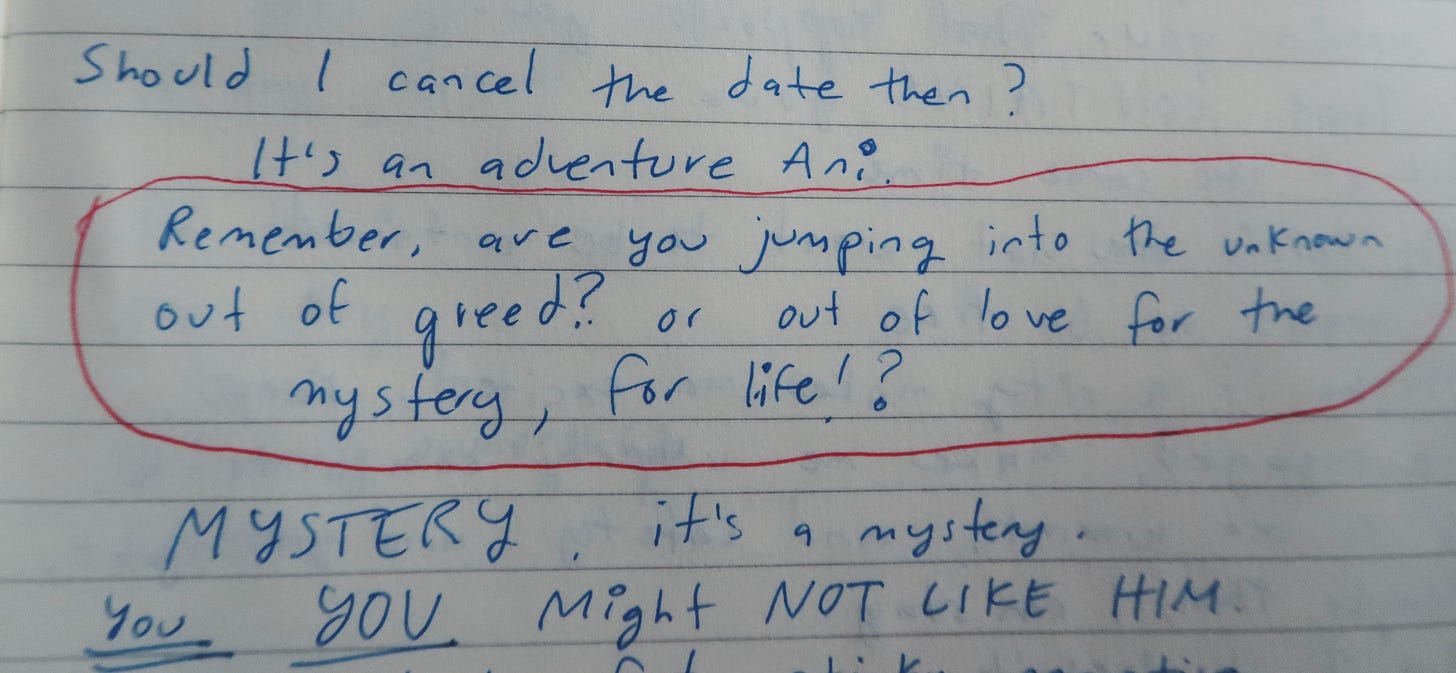 Should I cancel the date then?
It's an adventure Ani.
Remember, are you jumping into the unknown
out of greed? or out of love for the
mystery, for life!?
MYSTERY. it's a mystery.
You YOU Might NOT LIKE HIM.